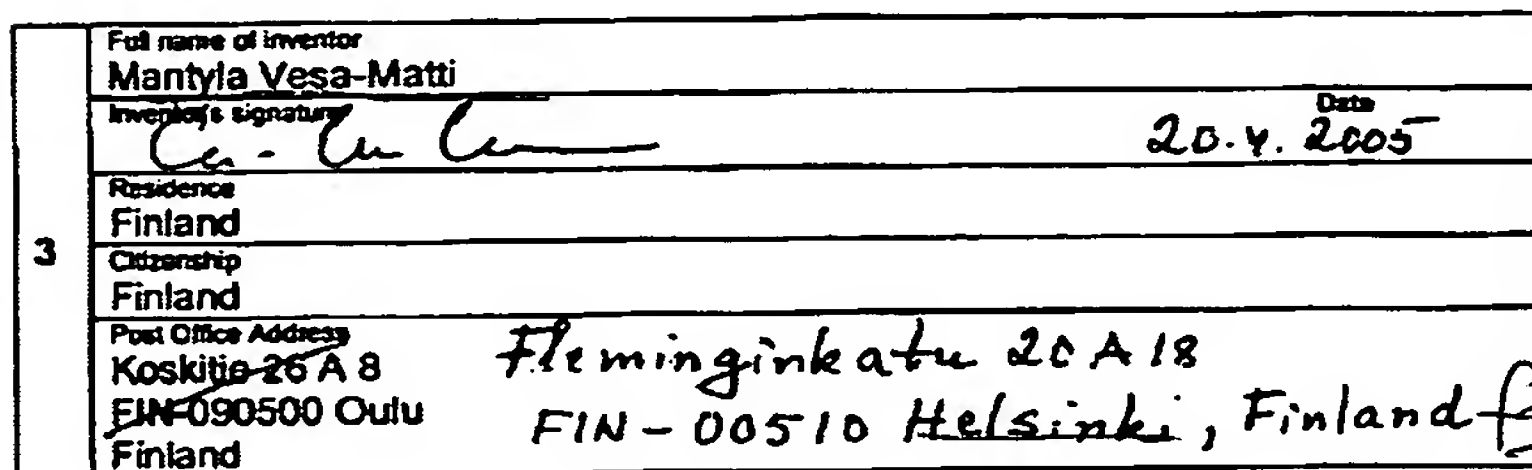 3
Full name of inventor
Mantyla Vesa-Matti
Inventor's signature
Date
20.4.2005
Residence
Finland
Citizenship
Finland
Post Office Address
Koskitie 26 A 8
FIN-090500 Oulu
Finland
Fleminginkatu 20 A 18
FIN-00510 Helsinki, Finland